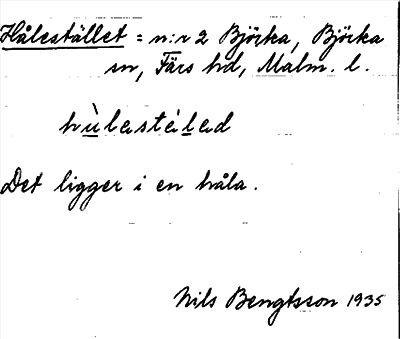 Hålestället = n:r 2 Björka, Björka
sn, Färs hd, Malm. l.
hùlastélad
Det ligger i en håla.
Nils Bengtsson 1935